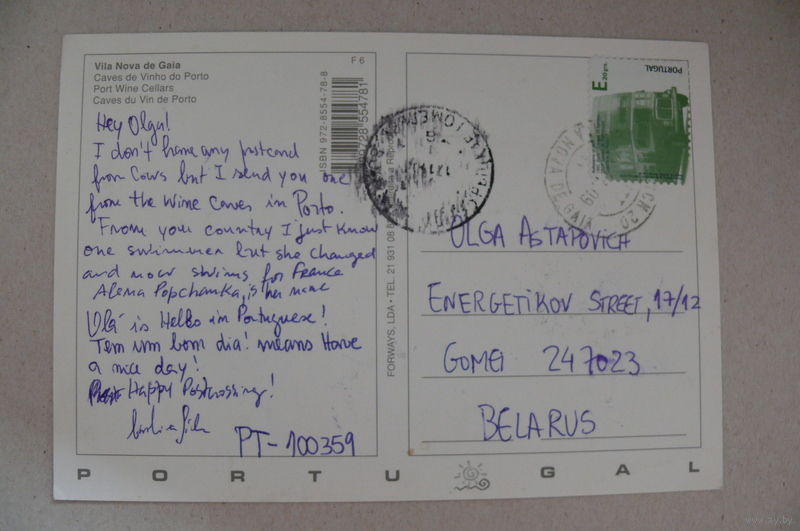 Vila Nova de Gaia
Caves de Vinho do Porto
Port Wine Cellars
Caves du Vin de Porto
F 6
ISBN 972-8554-78-8
Hey Olga!
I don't have any postcard
from Cows but I send you one
from the Wine Caves in Porto.
From your country I just know
one swimmer but she changed
and now swims for France
Alena Popchanka, is her name
Olá is Hello in Portuguese!
Tem um bom dia! means Have
a nice day!
Happy Postcrossing!
PT-100359
FORWAYS, LDA • TEL. 21 931 08 8
PORTUGAL
E 20 grs.
OLGA ASTAPOVICH
ENERGETIKOV STREET, 17/12
GOMEL 247023
BELARUS
PORTUGAL